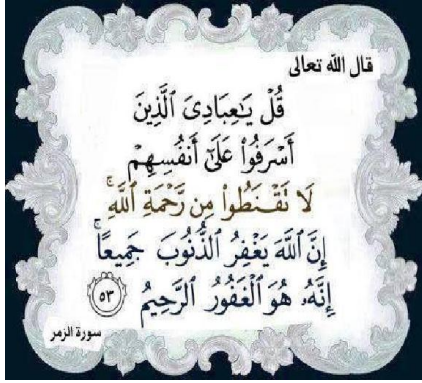 قال الله تعالى
قُلْ يَٰعِبَادِىَ ٱلَّذِينَ
أَسْرَفُوا۟ عَلَىٰٓ أَنفُسِهِمْ
لَا تَقْنَطُوا۟ مِن رَّحْمَةِ ٱللَّهِ ۚ
إِنَّ ٱللَّهَ يَغْفِرُ ٱلذُّنُوبَ جَمِيعًا ۚ
إِنَّهُۥ هُوَ ٱلْغَفُورُ ٱلرَّحِيمُ ٥٣
سورة الزمر